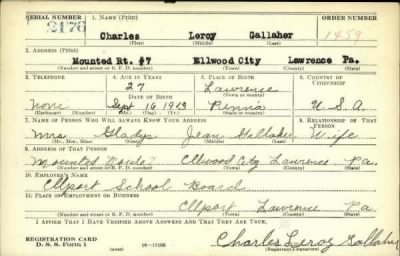 SERIAL NUMBER 1. NAME (Print) ORDER NUMBER
2176 Charles Leroy Gallaher 1459
(First) (Middle) (Last)
2. ADDRESS (Print)
Mounted Rt. #7 Ellwood City Lawrence Pa.
(Number and street or R. F. D. number) (Town) (County) (State)
3. TELEPHONE 4. AGE IN YEARS 5. PLACE OF BIRTH 6. COUNTRY OF CITIZENSHIP
27 Lawrence
DATE OF BIRTH (Town or county)
None Sept 16 1913 Penna U.S.A.
(Mo.) (Day) (Yr.) (State or country)
7. NAME OF PERSON WHO WILL ALWAYS KNOW YOUR ADDRESS 8. RELATIONSHIP OF THAT PERSON
Mrs Gladys Jean Gallaher Wife
(Mr., Mrs., Miss) (First) (Middle) (Last)
9. ADDRESS OF THAT PERSON
Mounted Route 7 Ellwood City Lawrence Pa.
(Number and street or R. F. D. number) (Town) (County) (State)
10. EMPLOYER'S NAME
Ellport School Board
11. PLACE OF EMPLOYMENT OR BUSINESS
Ellport Lawrence Pa.
(Number and street or R. F. D. number) (Town) (County) (State)
I AFFIRM THAT I HAVE VERIFIED ABOVE ANSWERS AND THAT THEY ARE TRUE.
REGISTRATION CARD
D. S. S. Form 1 Charles Leroy Gallaher
(Registrant's signature)